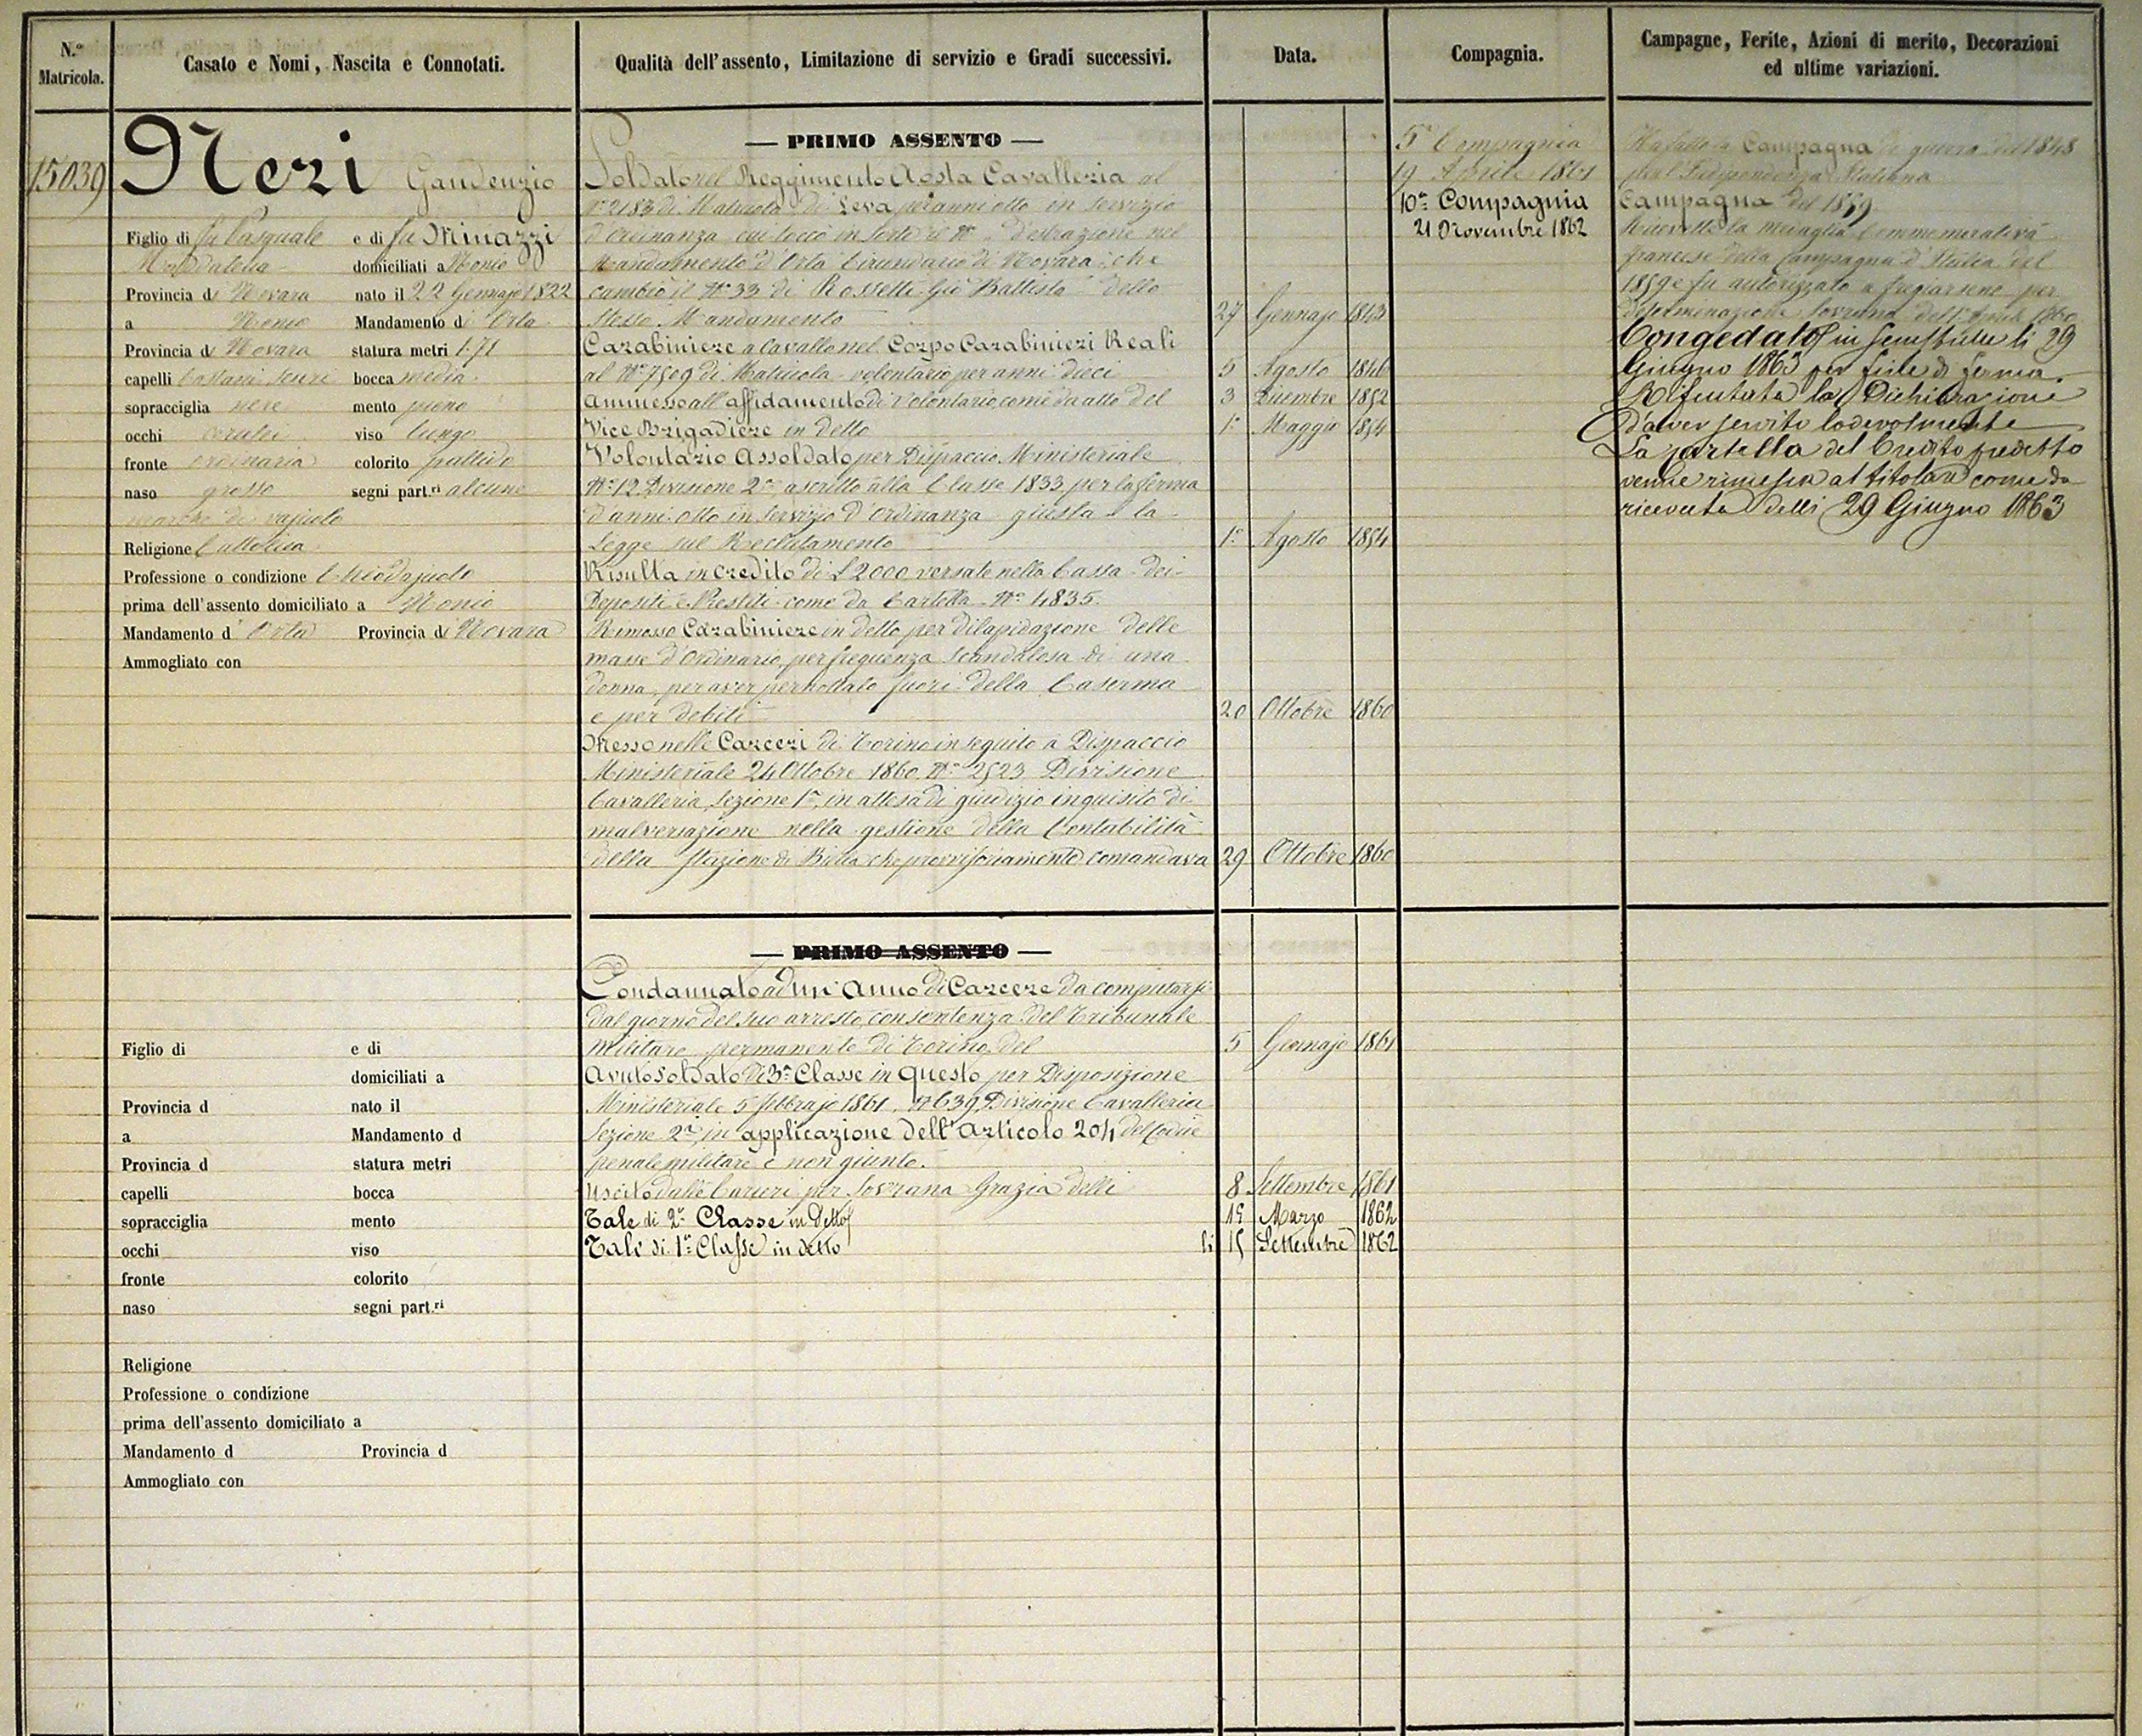 N.º Matricola.
Casato e Nomi, Nascita e Connotati.
Qualità dell'assento, Limitazione di servizio e Gradi successivi.
Data.
Compagnia.
Campagne, Ferite, Azioni di merito, Decorazioni
ed ultime variazioni.
15039
Neri Gaudenzio
Figlio di fu Pasquale e di fu Minazzi
Maddalena domiciliati a Nonio
Provincia di Novara nato il 22 Gennajo 1822
a Nonio Mandamento di Orta
Provincia di Novara statura metri 1.71
capelli Castani scuri bocca media
sopracciglia nere mento
occhi cerulei viso lungo
fronte ordinaria colorito pallido
naso grosso segni part.ri alcune
marche di vajuolo
Religione Cattolica
Professione o condizione Chiodajuolo
prima dell'assento domiciliato a Nonio
Mandamento d' Orta Provincia di Novara
Ammogliato con
— PRIMO ASSENTO —
Soldato nel Reggimento Aosta Cavalleria al
Nº 2183 di Matricola di Leva per anni otto in servizio
d'ordinanza cui toccò in sorte il Nº d'estrazione nel
Mandamento d'Orta Circondario di Novara che
cambiò il Nº 33 di Rossetti Gio Battista dello
stesso Mandamento 27 Gennajo 1843
Carabiniere a Cavallo nel Corpo Carabinieri Reali
al Nº 7509 di Matricola volontario per anni dieci 5 Agosto 1846
Ammesso all'affidamento di Volontario, come da atto del 3 Dicembre 1852
Vice Brigadiere in detto 1º Maggio 1854
Volontario Assoldato per Dispaccio Ministeriale
Nº 12 Divisione 2ª, ascritto alla Classe 1833 per la ferma
d'anni otto in servizio d'ordinanza giusta la
Legge sul Reclutamento 1º Agosto 1854
Risulta in credito di £ 2000 versate nella Cassa dei
Depositi e Prestiti come da Cartella Nº 4835.
Rimosso Carabiniere in detto per dilapidazione delle
masse d'Ordinario, per frequenza scandalosa di una
donna, per aver pernottato fuori della Caserma
e per debiti 20 Ottobre 1860
Messo nelle Carceri di Torino in seguito a Dispaccio
Ministeriale 24 Ottobre 1860 Nº 2523 Divisione
Cavalleria, Sezione 1ª, in attesa di giudizio inquisito di
malversazione nella gestione della Contabilità
della Stazione di che provvisoriamente comandava 29 Ottobre 1860
5ª Compagnia
19 Aprile 1861
10ª Compagnia
21 Novembre 1862
Ha fatto la Campagna di guerra del 1848
per l'Indipendenza Italiana
Campagna del 1859.
Ricevette la medaglia Commemorativa
francese della Campagna d'Italia del
1859 e fu autorizzato a fregiarsene per
determinazione Sovrana del 1º Aprile 1860
Congedato in li 29
Giugno 1863 per fine di ferma.
Rifiutata la Dichiarazione
d'aver servito lodevolmente
La cartella del Credito predetto
venne rimessa al titolare come da
ricevuta delli 29 Giugno 1863
— PRIMO ASSENTO —
Condannato ad un' Anno di Carcere da computarsi
dal giorno del suo arresto, con sentenza del Tribunale
Militare permanente di Torino, del 5 Gennajo 1861
Avuto Soldato di 3ª Classe in questo per Disposizione
Ministeriale 5 febbrajo 1861, Nº 639 Divisione Cavalleria
Sezione 2ª, in applicazione dell'articolo 204 del Codice
penale militare e non giunto.
Uscito dalle Carceri per Sovrana Grazia delli 8 Settembre 1861
Tale di 2ª Classe in detto 15 Marzo 1862
Tale di 1ª Classe in detto li 15 Settembre 1862
Figlio di e di
domiciliati a
Provincia d nato il
a Mandamento d
Provincia d statura metri
capelli bocca
sopracciglia mento
occhi viso
fronte colorito
naso segni part.ri
Religione
Professione o condizione
prima dell'assento domiciliato a
Mandamento d Provincia d
Ammogliato con